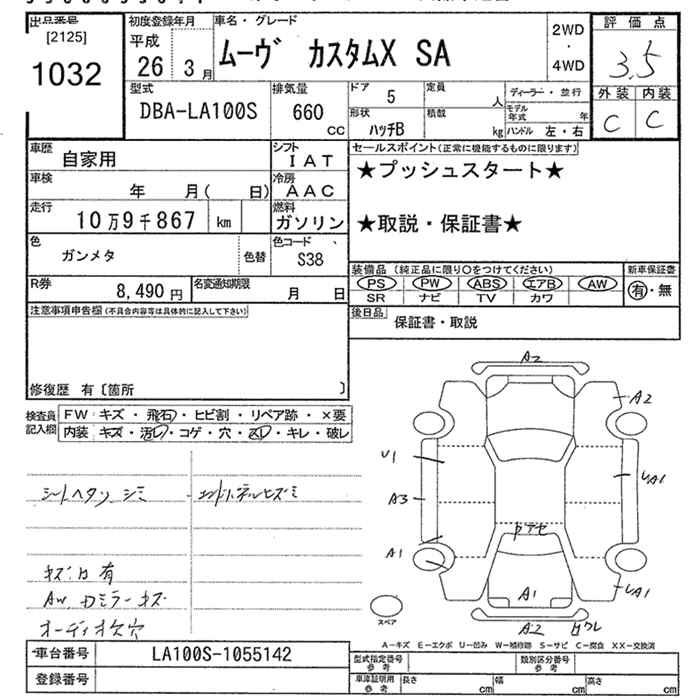 出品番号
[2125]
1032
初度登録年月
平成
26 3月
車名・グレード
ムーヴ カスタムX SA
2WD
・
4WD
評価点
3.5
外装 内装
C C
型式
DBA-LA100S
排気量
660
CC
ドア 5
定員 人
形状 ハッチB
積載 kg
ディーラー・並行
モデル年式 年
ハンドル 左・右
車歴 自家用
シフト IAT
車検 年 月( 日)
冷房 AAC
走行 10万9千867 km
燃料 ガソリン
色 ガンメタ
色替
色コード S38
R券 8,490円
名変通知期限 月 日
セールスポイント(正常に機能するものに限ります)
★プッシュスタート★
★取説・保証書★
装備品 (純正品に限り○をつけてください)
PS PW ABS エアB AW
SR ナビ TV カワ
新車保証書
有・無
後日品 保証書・取説
注意事項申告欄(不具合内容等は具体的に記入して下さい)
修復歴 有〔箇所 〕
検査員記入欄
FW キズ・飛石・ヒビ割・リペア跡・×要
内装 キズ・汚レ・コゲ・穴・スレ・キレ・破レ
シートヘタリ シミ
キズ凹有
AW, Dミラーキズ
オーディオ欠穴
A2
A2
U1
UA1
A3
A1
UA1
A1
A2
スペア
A-キズ E-エクボ U-凹み W-補修跡 S-サビ C-腐食 XX-交換済
車台番号 LA100S-1055142
登録番号
型式指定番号 参考
類別区分番号 参考
車庫証明用 参考
長さ cm 幅 cm 高さ cm